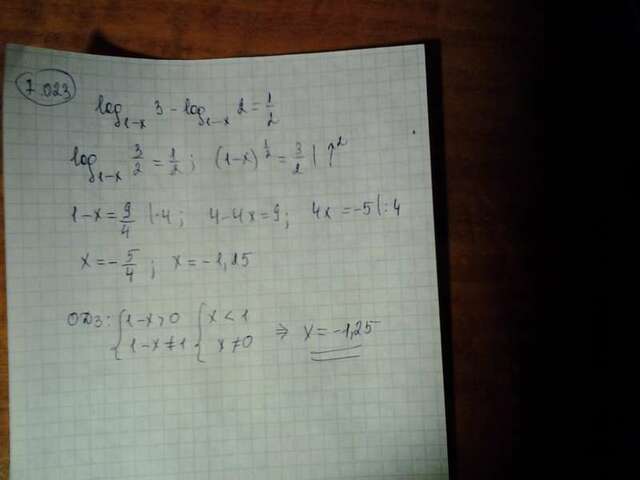 7.023
log₁₋ₓ 3 - log₁₋ₓ 2 = 1/2
log₁₋ₓ 3/2 = 1/2 ; (1-x)^(1/2) = 3/2 | ↑²
1-x = 9/4 |·4 ; 4-4x = 9 ; 4x = -5 |:4
x = -5/4 ; x = -1,25
ОДЗ: { 1-x>0 { x<1
{ 1-x≠1 { x≠0 ⇒ x = -1,25